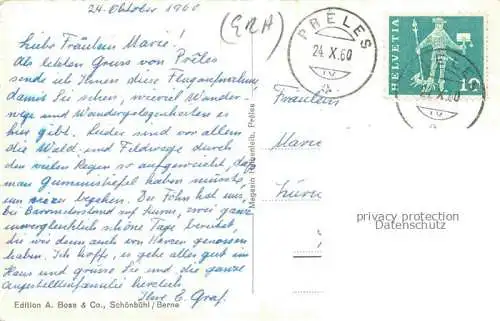 24. Oktober 1960
(ERA)
Liebe Fräulein Marie!
Als letzten Gruss von Prêles
sende ich Ihnen diese Flugaufnahme,
damit Sie sehen, wieviel Wander-
wege und Wandergelegenheiten es
hier gibt. Leider sind vor allem
die Wald- und Feldwege durch
den vielen Regen so aufgeweicht, dass
man Gummistiefel haben müsste,
um sie zu begehen. Der Föhn hat uns,
bei Barometerstand auf Sturm, zwei ganz
unvergleichlich schöne Tage beschert,
die wir denn auch von Herzen genossen
haben. Ich hoffe, es gehe alles gut im
Haus und grüsse Sie und die ganze
Angestelltenfamilie herzlich
Ihre E. Graf.
Edition A. Boss & Co., Schönbühl/Berne
Magasin Hahnenfeib, Prêles
PRÊLES
24.X.60
HELVETIA
10
X.60
Fräulein
Marie
privacy protection
Datenschutz